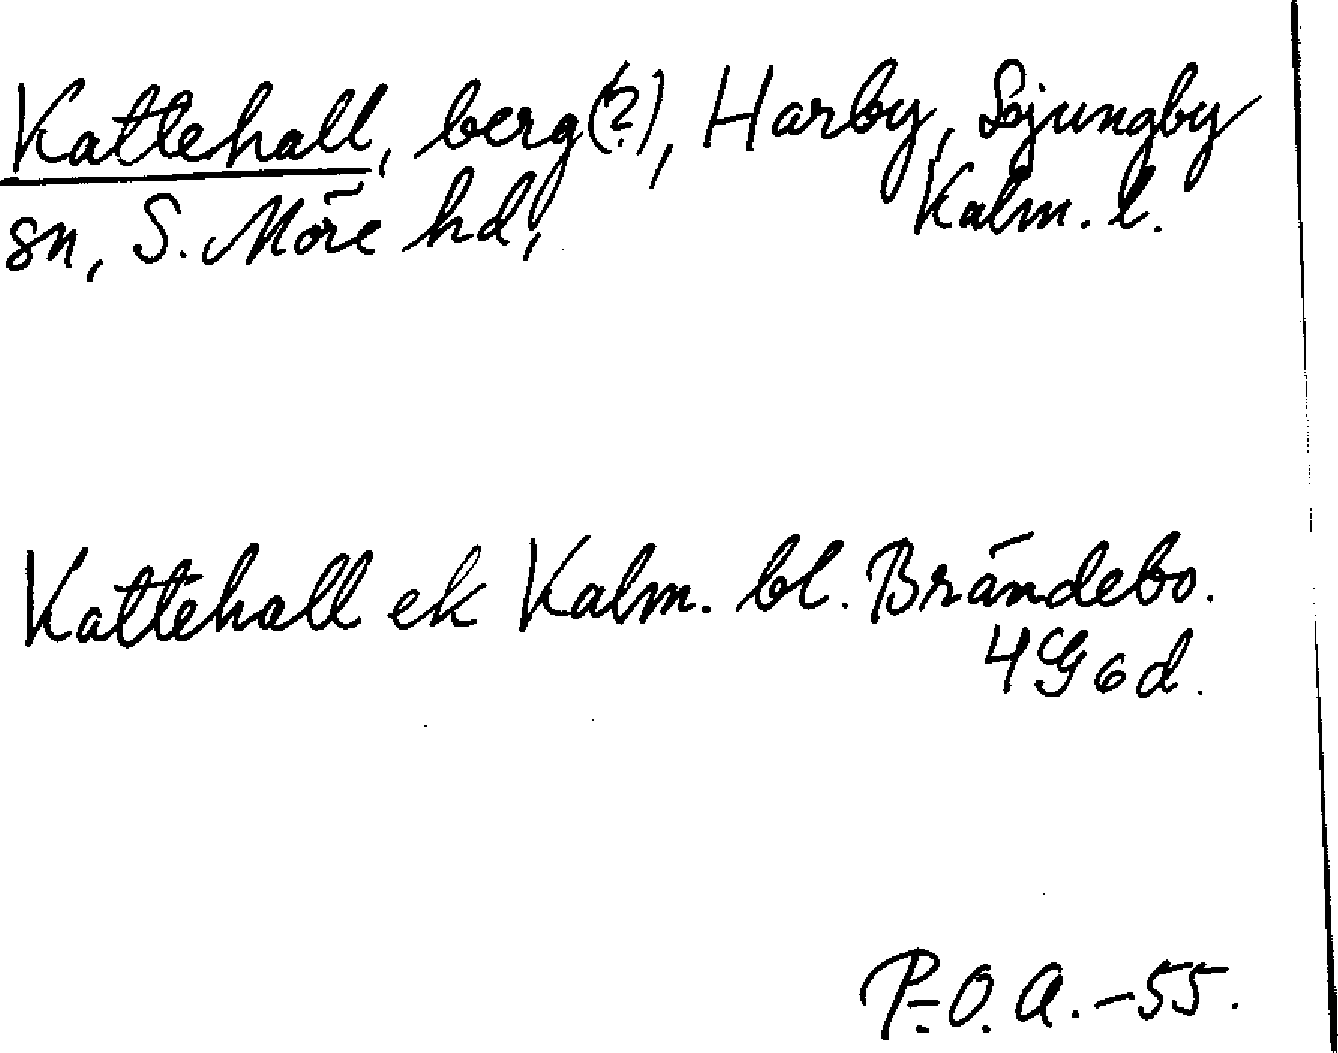 Kattehall, berg(?), Harby, Ljungby
sn, S. Möre hd, Kalm. l.
Kattehall ek Kalm. bl. Brändebo.
4 G o d.
P.-O. A. -55.